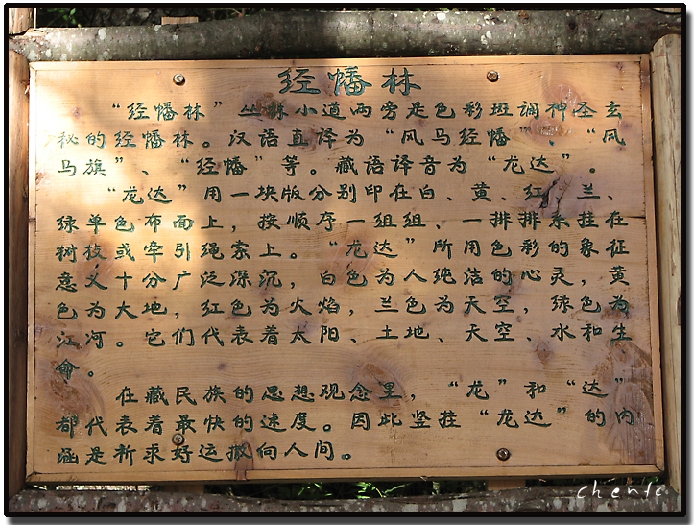 经幡林
“经幡林”丛林小道两旁是色彩斑调神圣玄
秘的经幡林。汉语直译为“风马经幡”、“风
马旗”、“经幡”等。藏语译音为“龙达”。
“龙达”用一块版分别印在白、黄、红、兰、
绿单色布面上，按顺序一组组、一排排系挂在
树枝或牵引绳索上。“龙达”所用色彩的象征
意义十分广泛深沉，白色为人纯洁的心灵，黄
色为大地，红色为火焰，兰色为天空，绿色为
江河。它们代表着太阳、土地、天空、水和生
命。
在藏民族的思想观念里，“龙”和“达”
都代表着最快的速度。因此竖挂“龙达”的内
涵是祈求好运撒向人间。
chenfc